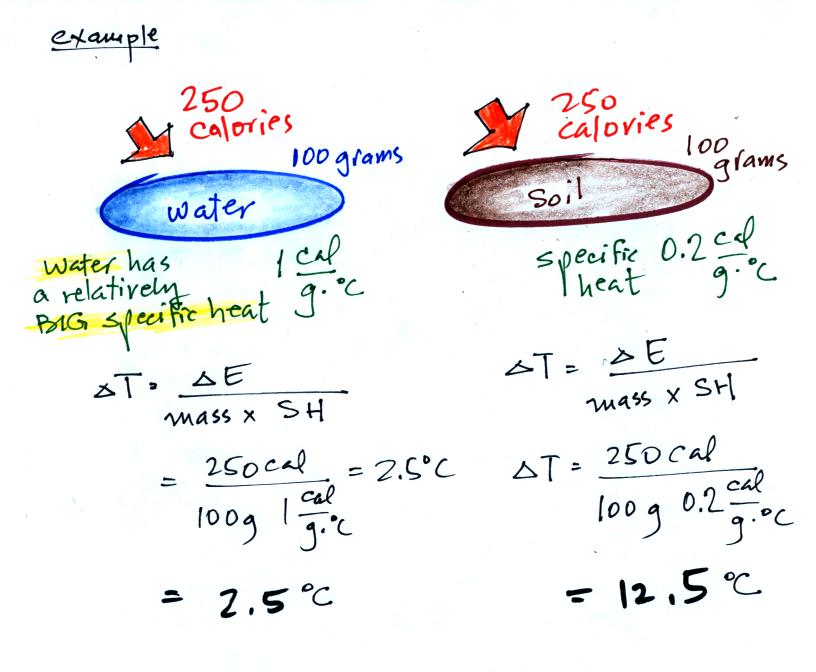 example
250
calories
100 grams
water
Water has
a relatively
BIG specific heat
1 cal
g.°C
ΔT = ΔE
mass x SH
= 250 cal = 2.5°C
100g 1 cal
g.°C
= 2.5°C
250
calories
100
grams
Soil
specific 0.2 cal
heat g.°C
ΔT = ΔE
mass x SH
ΔT = 250 cal
100 g 0.2 cal
g.°C
= 12.5°C